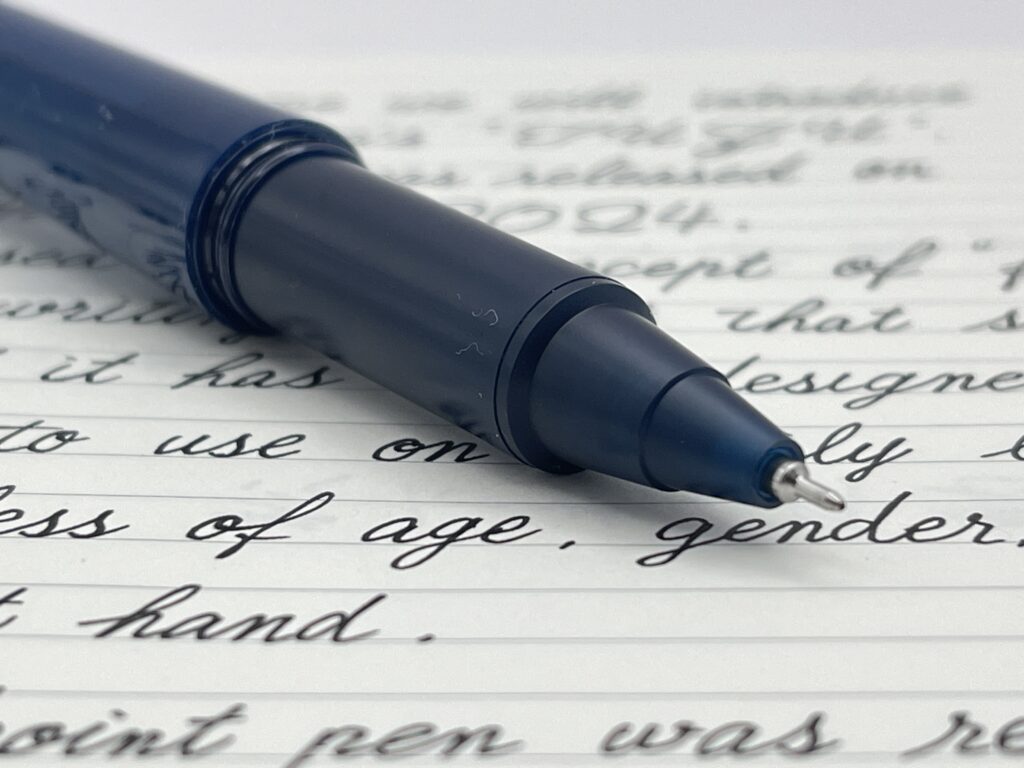 we will introduce
released on
2024.
concept of "
that
it has designe
to use on ly
less of age, gender,
hand.
point pen was re